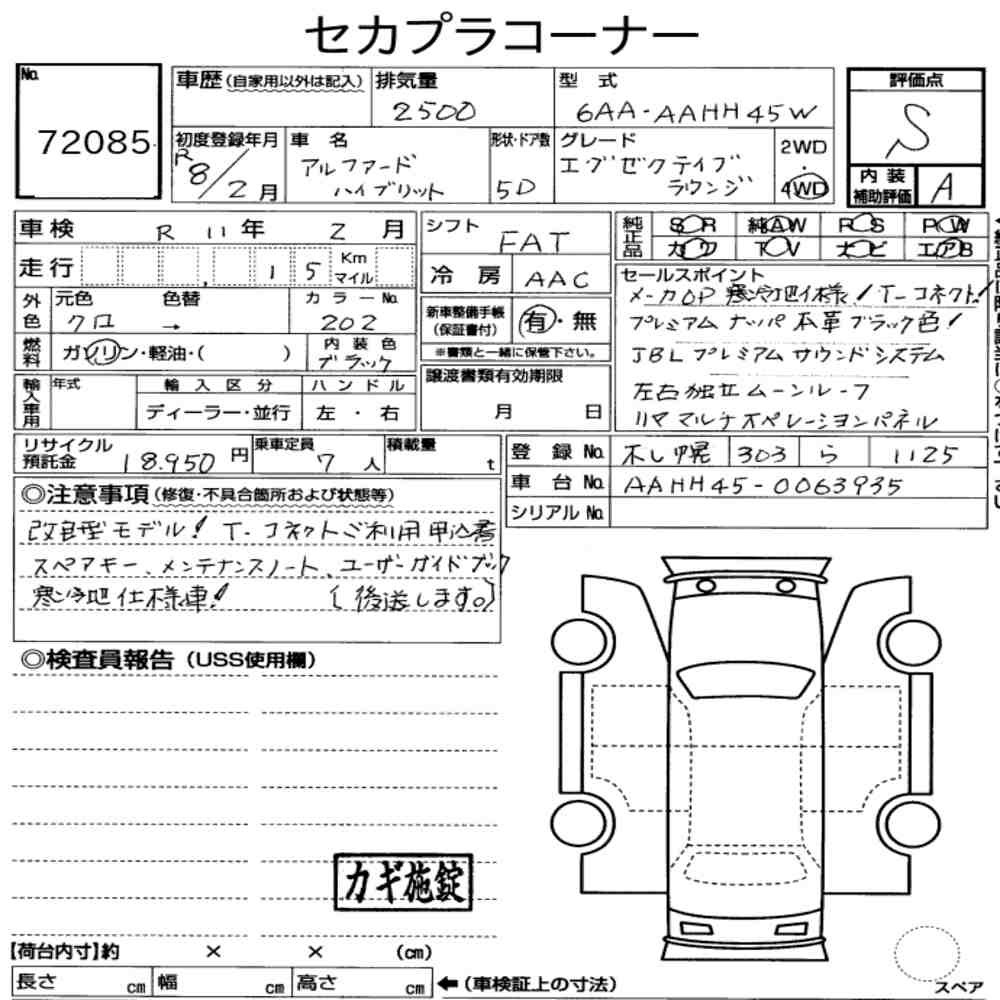 セカプラコーナー
No. 72085
車歴(自家用以外は記入) 排気量 2500
型式 6AA-AAHH45W
評価点 S
初度登録年月 R8/2月
車名 アルファード ハイブリット
形状・ドア数 5D
グレード エグゼクティブ ラウンジ
2WD・4WD
内装補助評価 A
車検 R 11年 2月
シフト FAT
純正品 SR 純AW PS PW
カワ TV ナビ エアB
走行 15 Km マイル
冷房 AAC
外色 元色 クロ → 色替 カラーNo. 202
新車整備手帳(保証書付) 有・無
※書類と一緒に保管下さい。
燃料 ガソリン・軽油・( )
内装色 ブラック
セールスポイント
メーカOP 寒冷地仕様! T-コネクト!
プレミアム ナッパ 本革 ブラック色!
JBL プレミアム サウンドシステム
左右独立ムーンルーフ
リヤ マルチオペレーションパネル
輸入車用 年式 輸入区分 ハンドル
ディーラー・並行 左・右
譲渡書類有効期限
月 日
リサイクル預託金 18.950円
乗車定員 7人
積載量 t
登録No. 札幌 303 ら 1125
車台No. AAHH45-0063935
シリアルNo.
◎注意事項(修復・不具合箇所および状態等)
改良型モデル! T-コネクトご利用申込書
スペアキー、メンテナンスノート、ユーザーガイドブック
寒冷地仕様車! (後送します。)
◎検査員報告(USS使用欄)
カギ施錠
【荷台内寸】約 × × (cm)
長さ cm 幅 cm 高さ cm ←(車検証上の寸法)
スペア